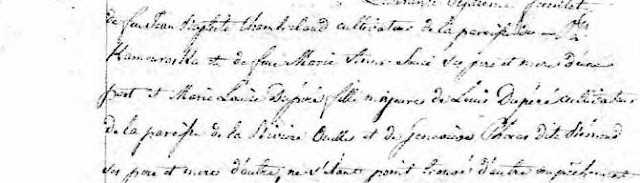 de feu Jean Baptiste Chamberland cultivateur de la paroisse de
Kamouraska et de feue Marie ses pere et mere d'une
part et Marie Louise Duperé fille majeure de Louis Duperé cultivateur
de la paroisse de la Riviere Ouelle et de Genevieve dite
ses pere et mere d'autre, ne s'etant point trouvé d'autre empêchement